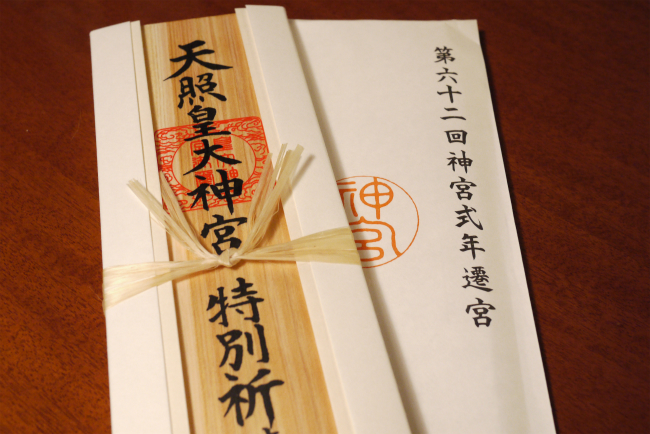 第六十二回神宮式年遷宮
神宮
天照皇大神宮
特別祈